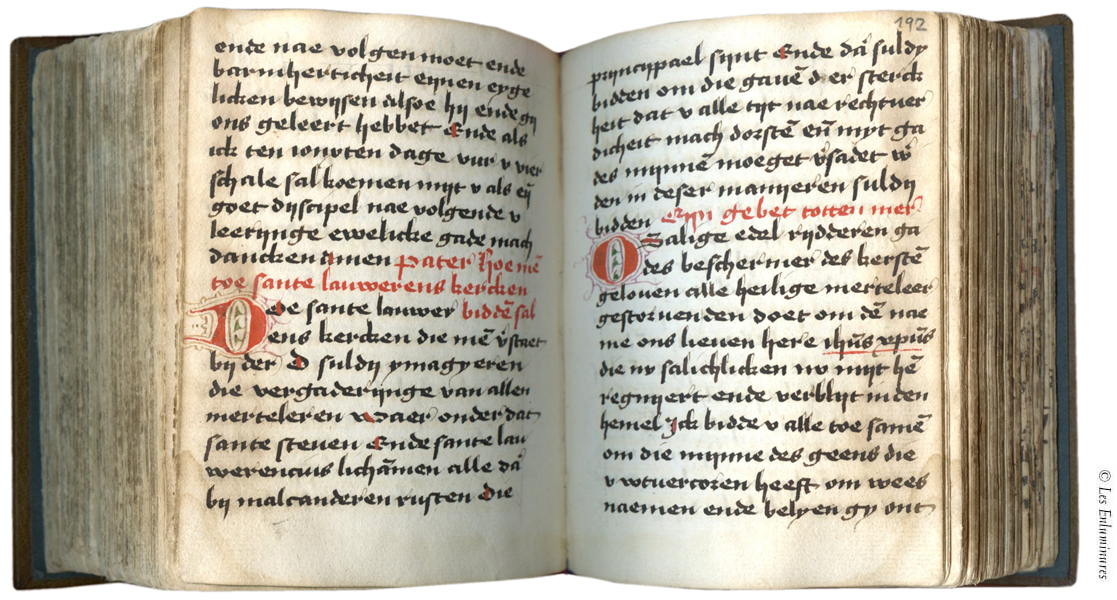 ende nae volgen moet ende
barmherticheit eynen eyge
licken bewijsen alsoe hij ende gij
ons geleert hebbet Ende als
ick ten ionxten dage vur v vier
schale sal koemen mijt v als eyn̄
goet dijscipel nae volgende v
leerijnge ewelicke gade mach
dancken Amen Pater hoe mē
toe sante lauwerens kercken
Dese sante lauwer biddē sal
ens kercken die mē v̄staet
bij der D suldij ymagyeren
die vergaderijnge van allen
merteleren Waer onder dat
sante steuen Ende sante lau
werencius lichāmen alle dā
bij malcanderen rusten Die
192
prijncijpael sijnt Ende dā suldy
bidden om die gauē der sterck
heit dat v alle tijt nae rechtuer
dicheit mach dorstē en̄ mijt ga
des mijnnē moeget v̄sadet w̄
den in deser manijeren suldij
bidden gebet totten mer
O Salige edel rijdderen ga
des beschermer des kerstē
gelouen alle heilige merteleer
gestoruen den doet om dē nae
me ons lieuen here ihūs xpūs
die nv salichlicken nv mijt hē
regnijert ende verblijt in den
hemel Ick bidde v alle toe samē
om die mijnne des geens die
v wtuercoren heeft om wees
naemen ende belyen gy ont
© Les Enluminures